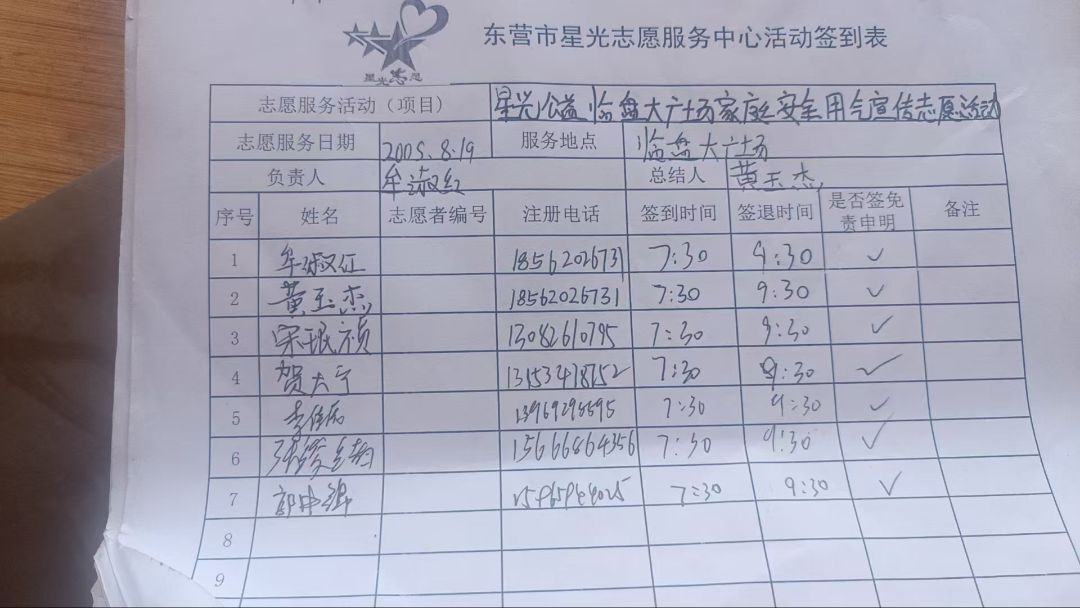 星光志愿
东营市星光志愿服务中心活动签到表
志愿服务活动（项目） 星光公益临盘大广场家庭安全用气宣传志愿活动
志愿服务日期 2005.8.19 服务地点 临盘大广场
负责人 牟淑红 总结人 黄玉杰
序号 姓名 志愿者编号 注册电话 签到时间 签退时间 是否签免责申明 备注
1 牟淑红 18562026731 7:30 9:30 ✓
2 黄玉杰 18562026731 7:30 9:30 ✓
3 宋珉祯 13082610795 7:30 9:30 ✓
4 贺大宁 13153478752 7:30 9:30 ✓
5 7:30 9:30 ✓
6 15666864356 7:30 9:30 ✓
7 7:30 9:30 ✓
8
9